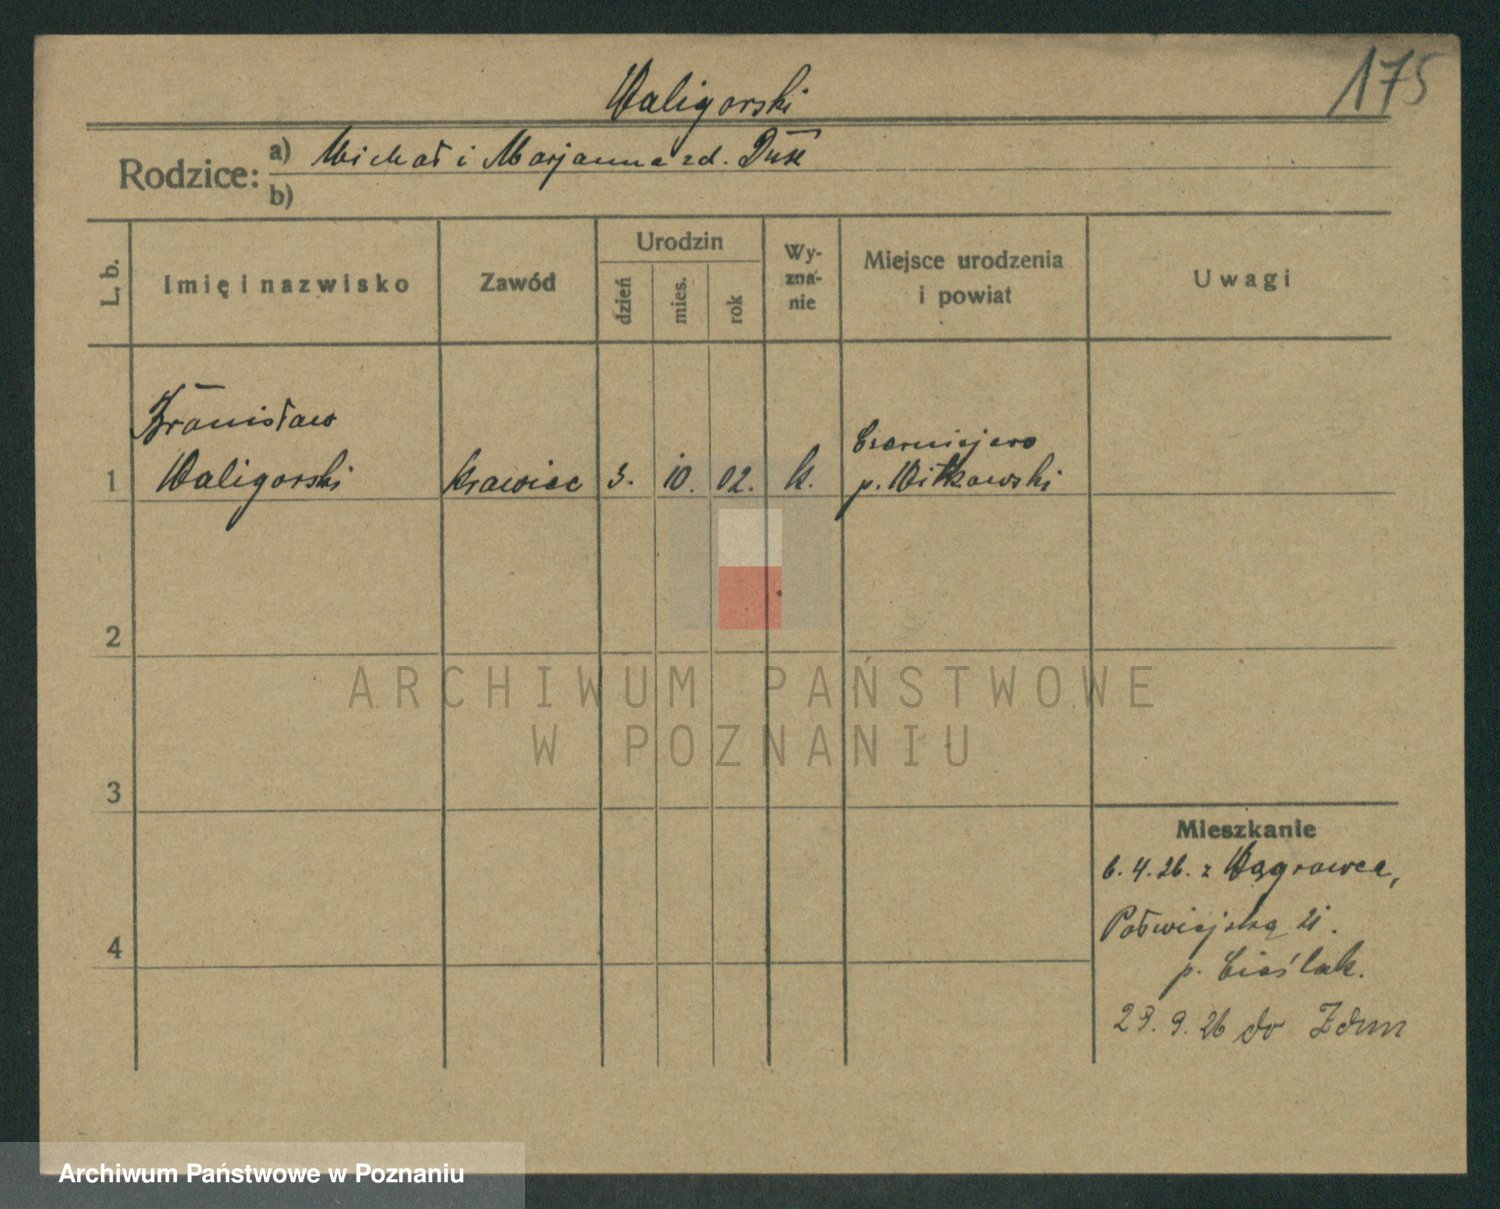 175
Waligorski
Rodzice: a) Michał i Marjanna zd. Dux
b)
L. b.
Imię i nazwisko
Zawód
Urodzin
dzień
mies.
rok
Wy-
zna-
nie
Miejsce urodzenia
i powiat
Uwagi
Bronisław
Czerniejewo
1 Waligorski krawiec 3. 10. 02. k. p. Witkowski
2
ARCHIWUM PAŃSTWOWE
W POZNANIU
3
Mieszkanie
6. 4. 26. z Wągrowca,
Półwiejską 21.
4
p. Cieślak.
29. 9. 26 do Zdun
Archiwum Państwowe w Poznaniu